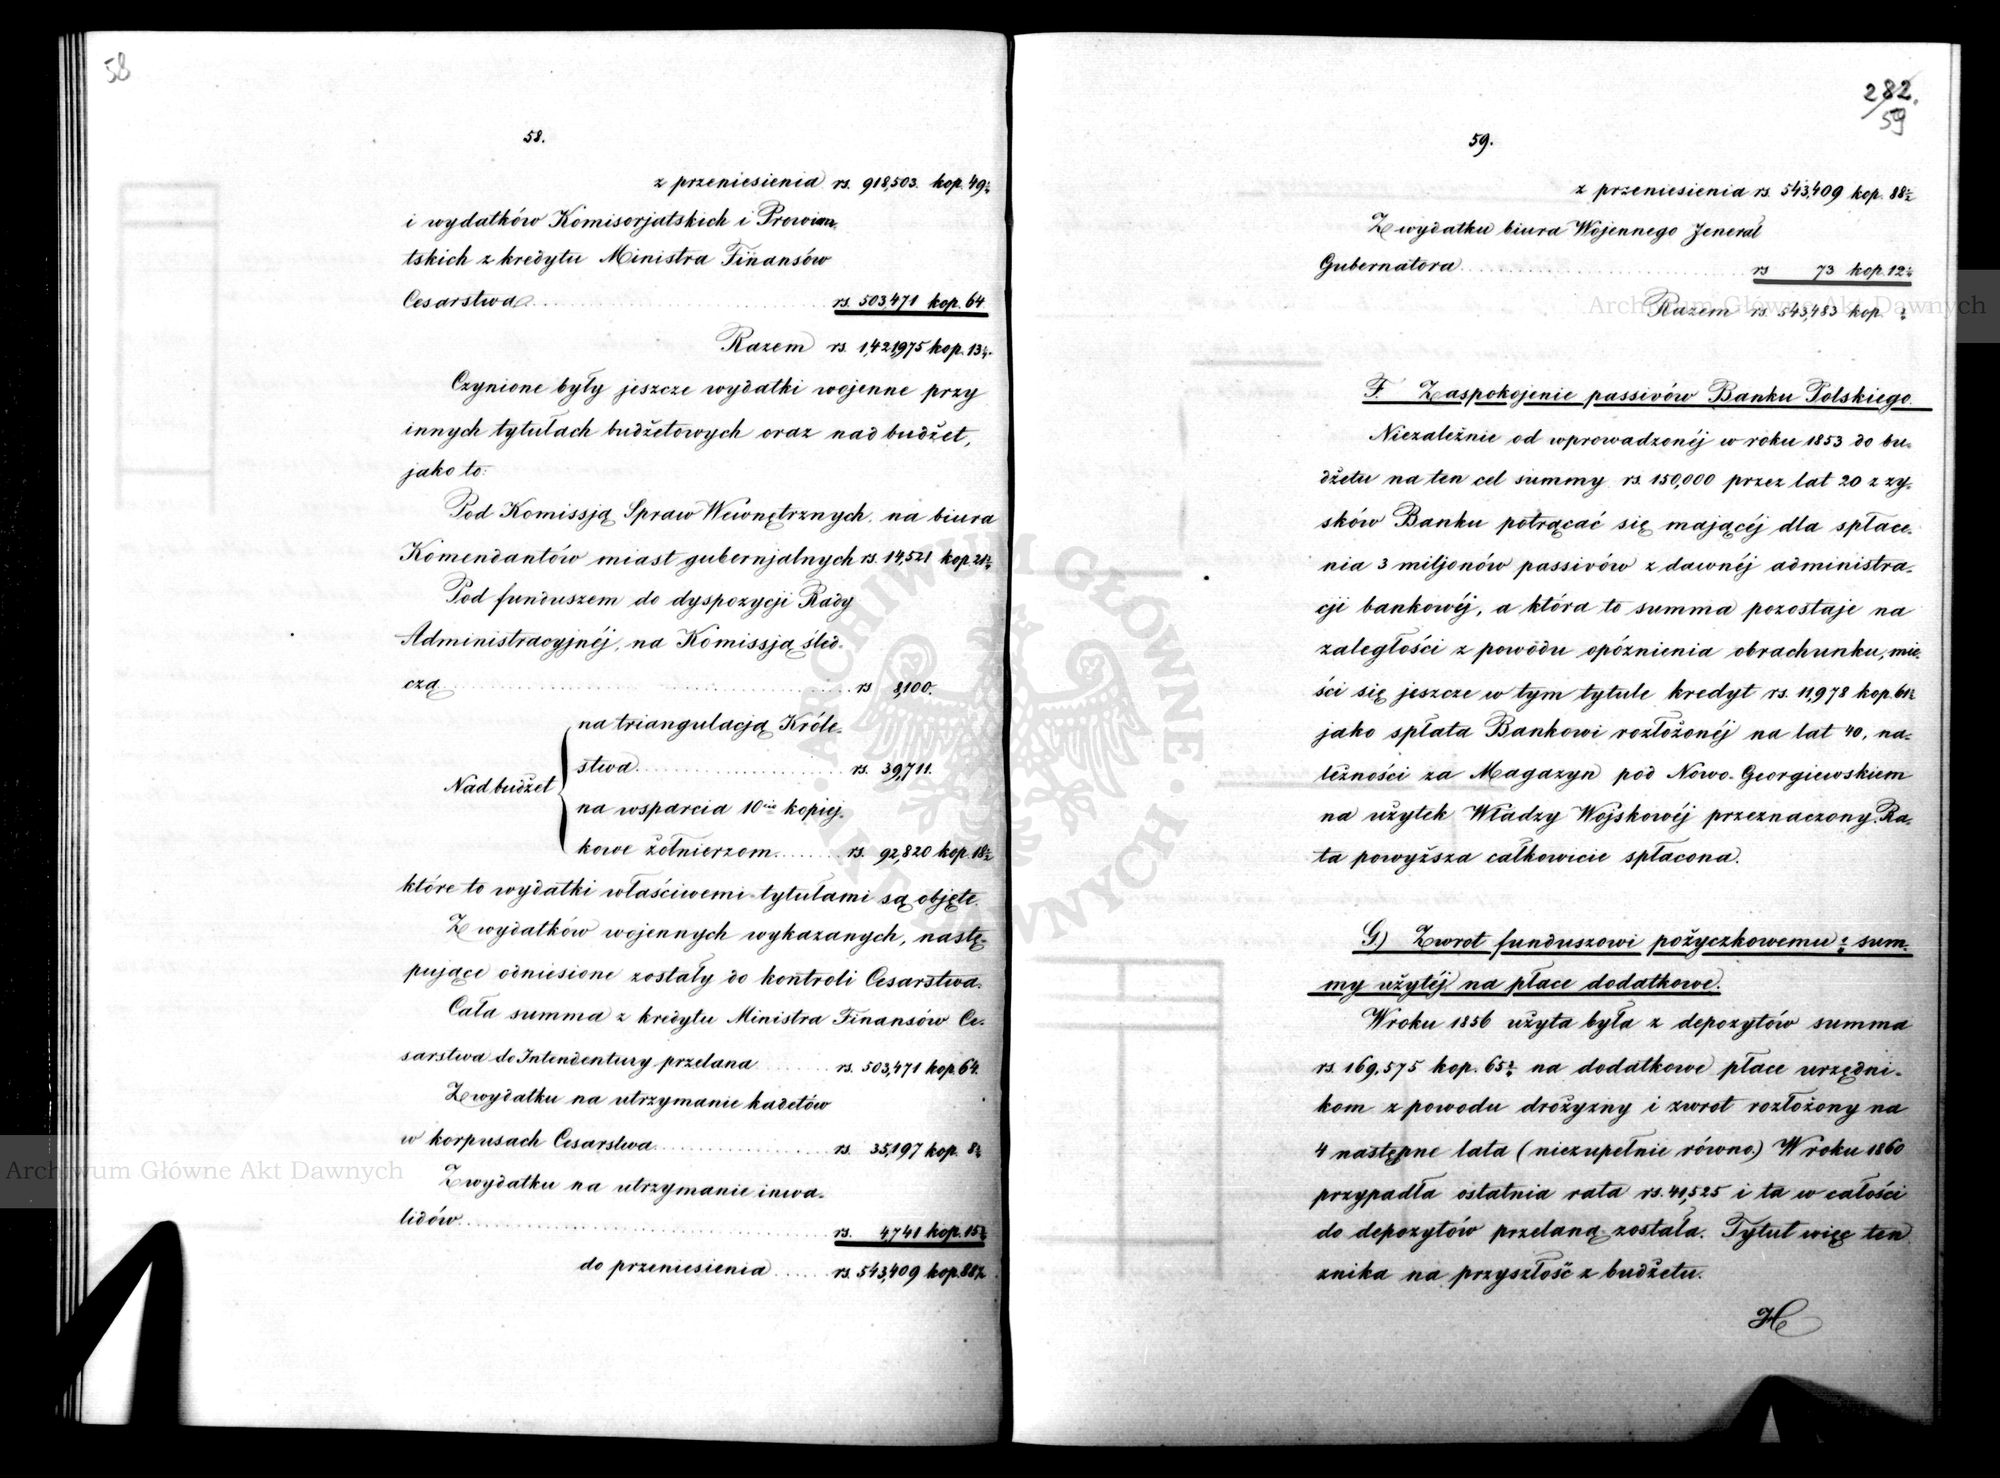 58
58.
z przeniesienia rs. 918,503. kop. 49½
i wydatków Komisorjatskich i Prowian-
tskich z kredytu Ministra Finansów
Cesarstwa rs. 503,471 kop. 64.
Razem rs. 1,421,975 kop. 13½.
Czynione były jeszcze wydatki wojenne przy
innych tytułach budżetowych oraz nad budżet,
jako to:
Pod Komissją Spraw Wewnętrznych, na biura
Komendantów miast gubernjalnych rs. 14,521 kop. 21½
Pod funduszem do dyspozycji Rady
Administracyjnéj, na Komissją śled-
czą rs 8,100.
Nad budżet
na triangulacją Króle-
stwa rs. 39,711.
na wsparcia 10cio kopiej-
kowe żołnierzom rs. 92,820 kop. 18½
które to wydatki właściwemi tytułami są objęte.
Z wydatków wojennych wykazanych, nastę-
pujące odniesione zostały do kontroli Cesarstwa.
Cała summa z kredytu Ministra Finansów Ce-
sarstwa do Intendentury przelana rs. 503,471 kop. 64.
Z wydatku na utrzymanie kadetów
w korpusach Cesarstwa rs. 35,197 kop. 8½
Z wydatku na utrzymanie inwa-
lidów rs. 4,741 kop. 15½
do przeniesienia rs. 543,409 kop. 88½
282.
59
59.
z przeniesienia rs. 543,409 kop. 88½
Z wydatku biura Wojennego Jenerał
Gubernatora rs 73 kop. 12½
Razem rs. 543,483 kop.
F. Zaspokojenie passivów Banku Polskiego.
Niezależnie od wprowadzonéj w roku 1853 do bu-
dżetu na ten cel summy rs. 150,000 przez lat 20 z zy-
sków Banku potrącać się mającéj dla spłace-
nia 3 miljonów passivów z dawnéj administra-
cji bankowéj, a która to summa pozostaje na
zaległości z powodu opóznienia obrachunku, mie-
ści się jeszcze w tym tytule kredyt rs. 11,978 kop. 61½
jako spłata Bankowi rozłożonéj na lat 40, na-
leżności za Magazyn pod Nowo-Georgiewskiem
na użytek Władzy Wojskowéj przeznaczony. Ra-
ta powyższa całkowicie spłacona.
G.) Zwrot funduszowi pożyczkowemu sum-
my użytéj na płace dodatkowe.
W roku 1856 użyta była z depozytów summa
rs. 169,575 kop. 65½ na dodatkowe płace urzędni-
kom z powodu drożyzny i zwrot rozłożony na
4 następne lata (niezupełnie równo.) W roku 1860
przypadła ostatnia rata rs. 41,525 i ta w całości
do depozytów przelaną została. Tytuł więc ten
znika na przyszłość z budżetu.
H
Archiwum Główne Akt Dawnych
Archiwum Główne Akt Dawnych
ARCHIWUM GŁÓWNE AKT DAWNYCH